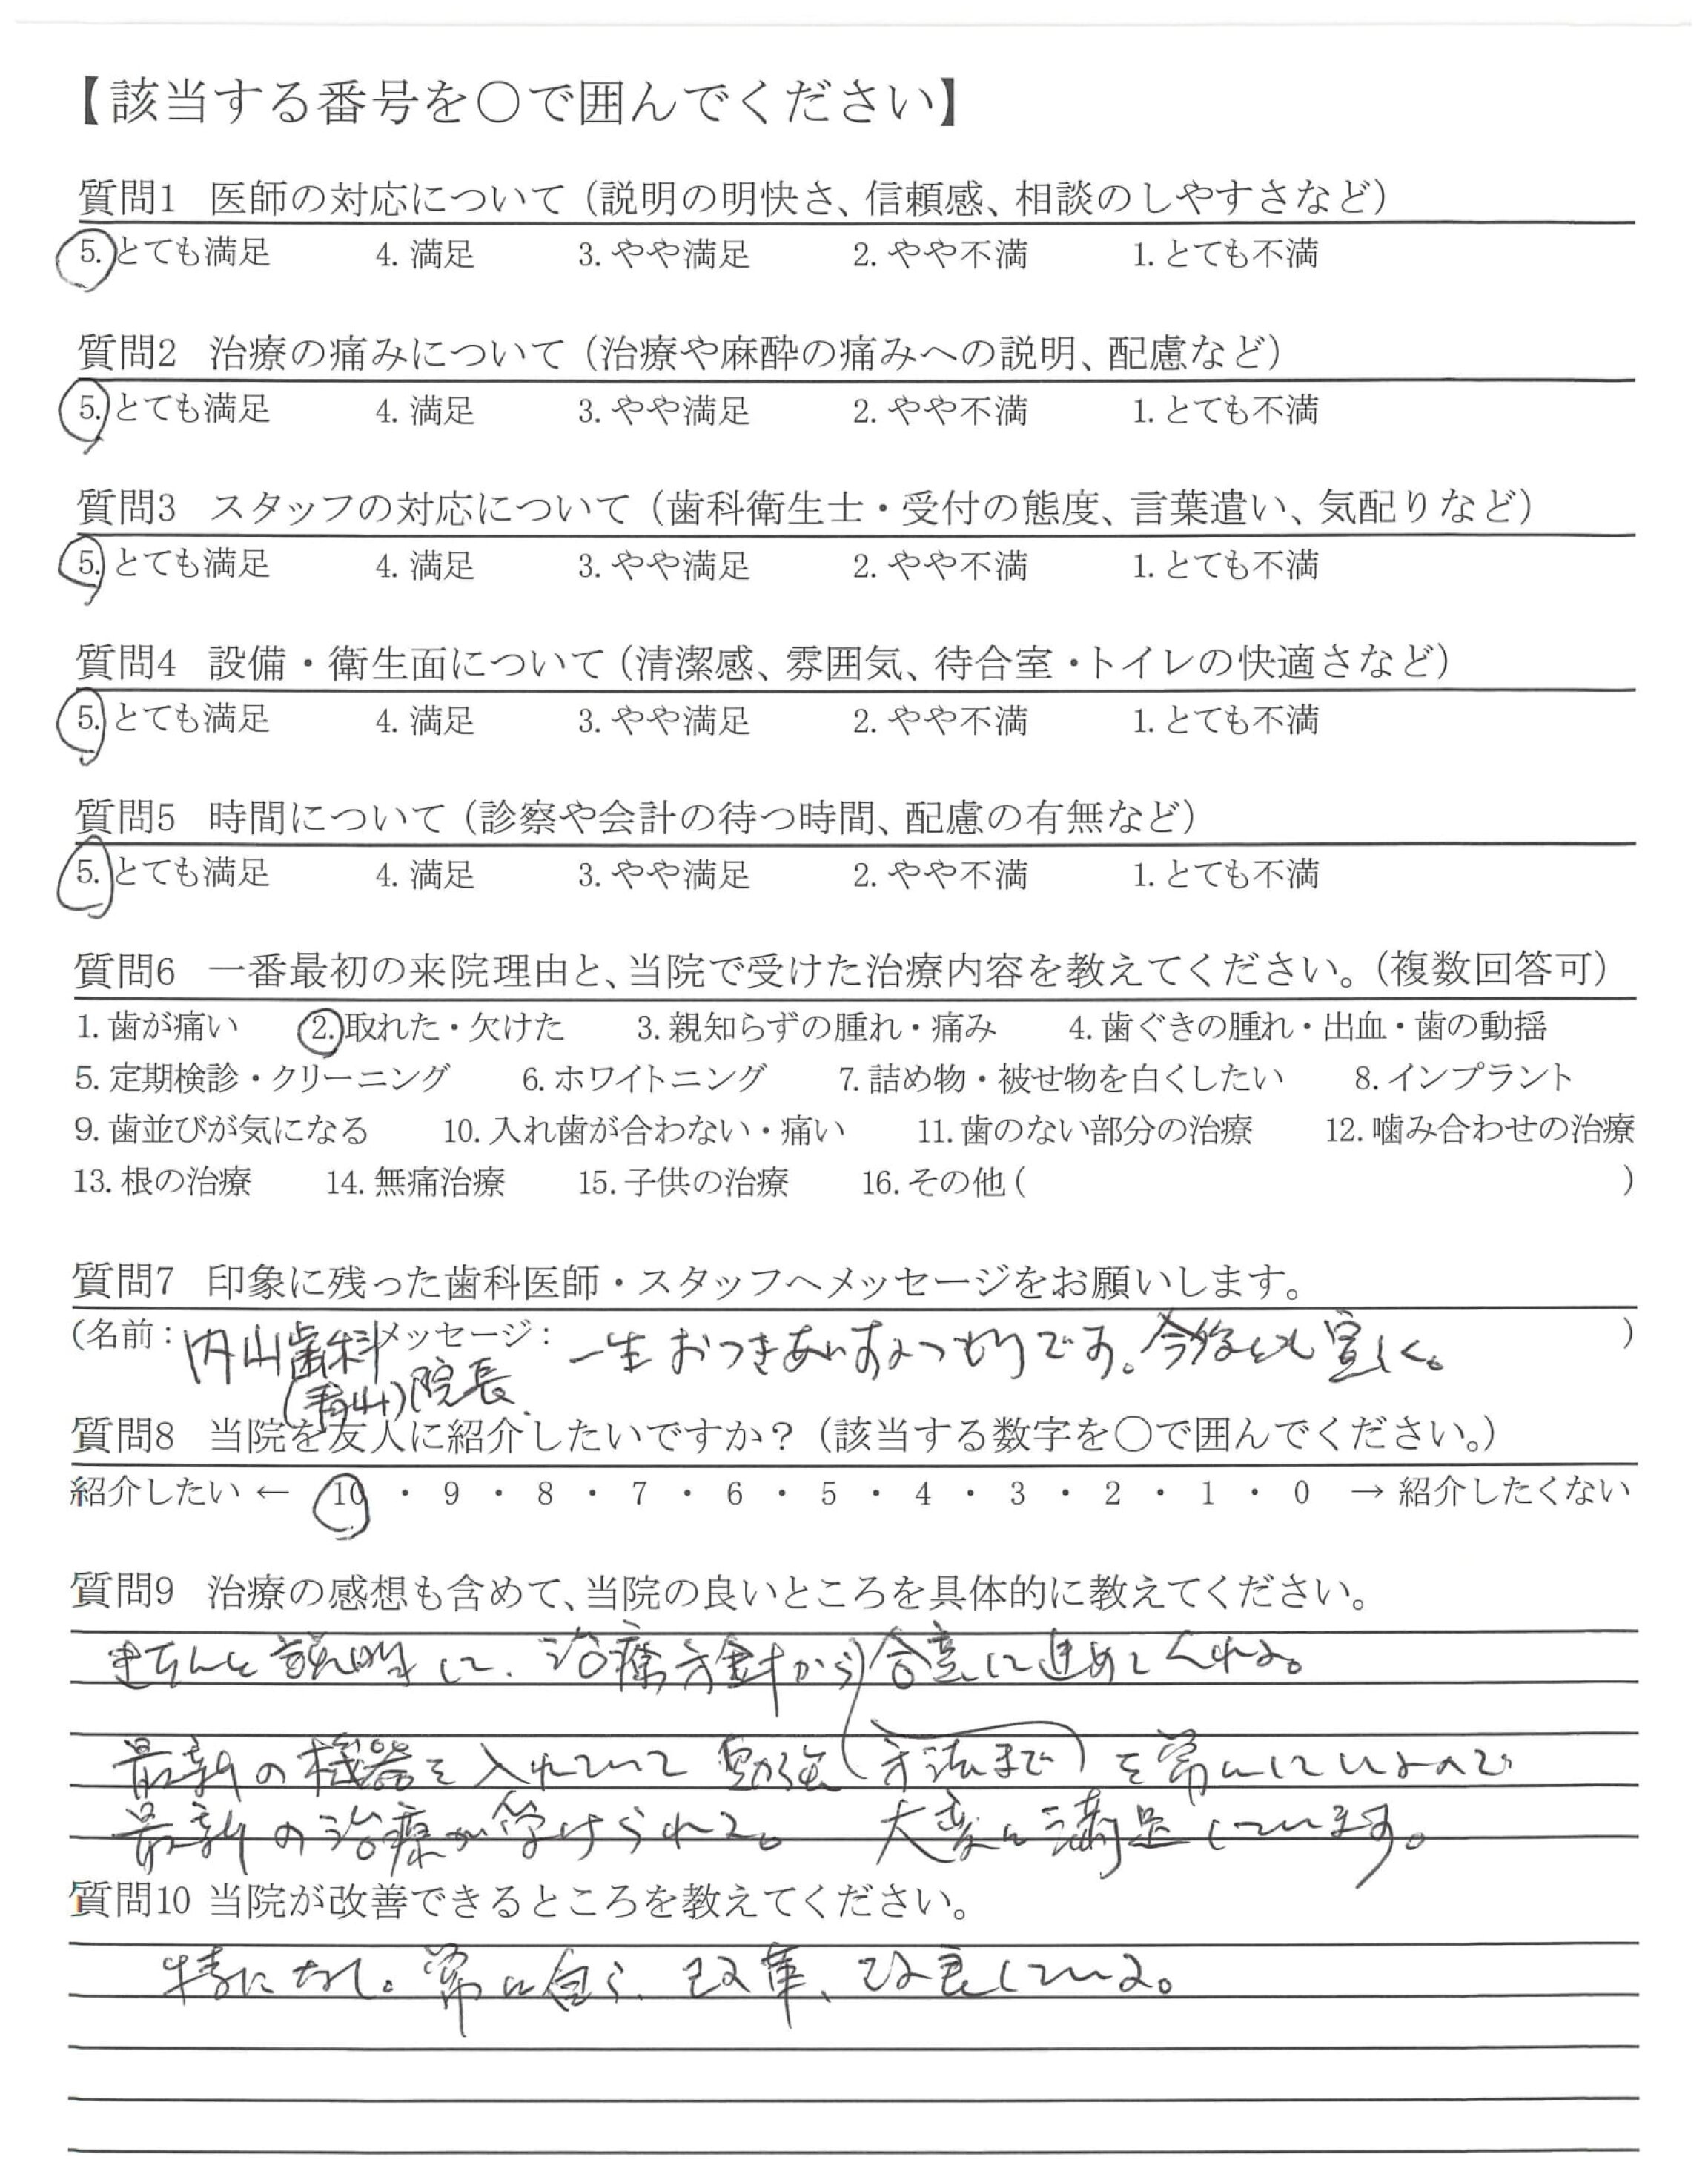 【該当する番号を○で囲んでください】
質問1 医師の対応について（説明の明快さ、信頼感、相談のしやすさなど）
5. とても満足 4. 満足 3. やや満足 2. やや不満 1. とても不満
質問2 治療の痛みについて（治療や麻酔の痛みへの説明、配慮など）
5. とても満足 4. 満足 3. やや満足 2. やや不満 1. とても不満
質問3 スタッフの対応について（歯科衛生士・受付の態度、言葉遣い、気配りなど）
5. とても満足 4. 満足 3. やや満足 2. やや不満 1. とても不満
質問4 設備・衛生面について（清潔感、雰囲気、待合室・トイレの快適さなど）
5. とても満足 4. 満足 3. やや満足 2. やや不満 1. とても不満
質問5 時間について（診察や会計の待つ時間、配慮の有無など）
5. とても満足 4. 満足 3. やや満足 2. やや不満 1. とても不満
質問6 一番最初の来院理由と、当院で受けた治療内容を教えてください。（複数回答可）
1. 歯が痛い 2. 取れた・欠けた 3. 親知らずの腫れ・痛み 4. 歯ぐきの腫れ・出血・歯の動揺
5. 定期検診・クリーニング 6. ホワイトニング 7. 詰め物・被せ物を白くしたい 8. インプラント
9. 歯並びが気になる 10. 入れ歯が合わない・痛い 11. 歯のない部分の治療 12. 噛み合わせの治療
13. 根の治療 14. 無痛治療 15. 子供の治療 16. その他 ( )
質問7 印象に残った歯科医師・スタッフへメッセージをお願いします。
（名前：内山歯科 メッセージ： 一生おつきあいするつもりです。今後とも宜しく。）
(青山)院長
質問8 当院を友人に紹介したいですか？（該当する数字を○で囲んでください。）
紹介したい ← 10 ・ 9 ・ 8 ・ 7 ・ 6 ・ 5 ・ 4 ・ 3 ・ 2 ・ 1 ・ 0 → 紹介したくない
質問9 治療の感想も含めて、当院の良いところを具体的に教えてください。
きちんと説明して、治療方針から合意に進めてくれる。
(方法まで)
最新の機器を入れていて勉強を常にしているので
最新の治療が受けられる。 大変に満足しています。
質問10 当院が改善できるところを教えてください。
特になし。常に自ら、改革、改良している。